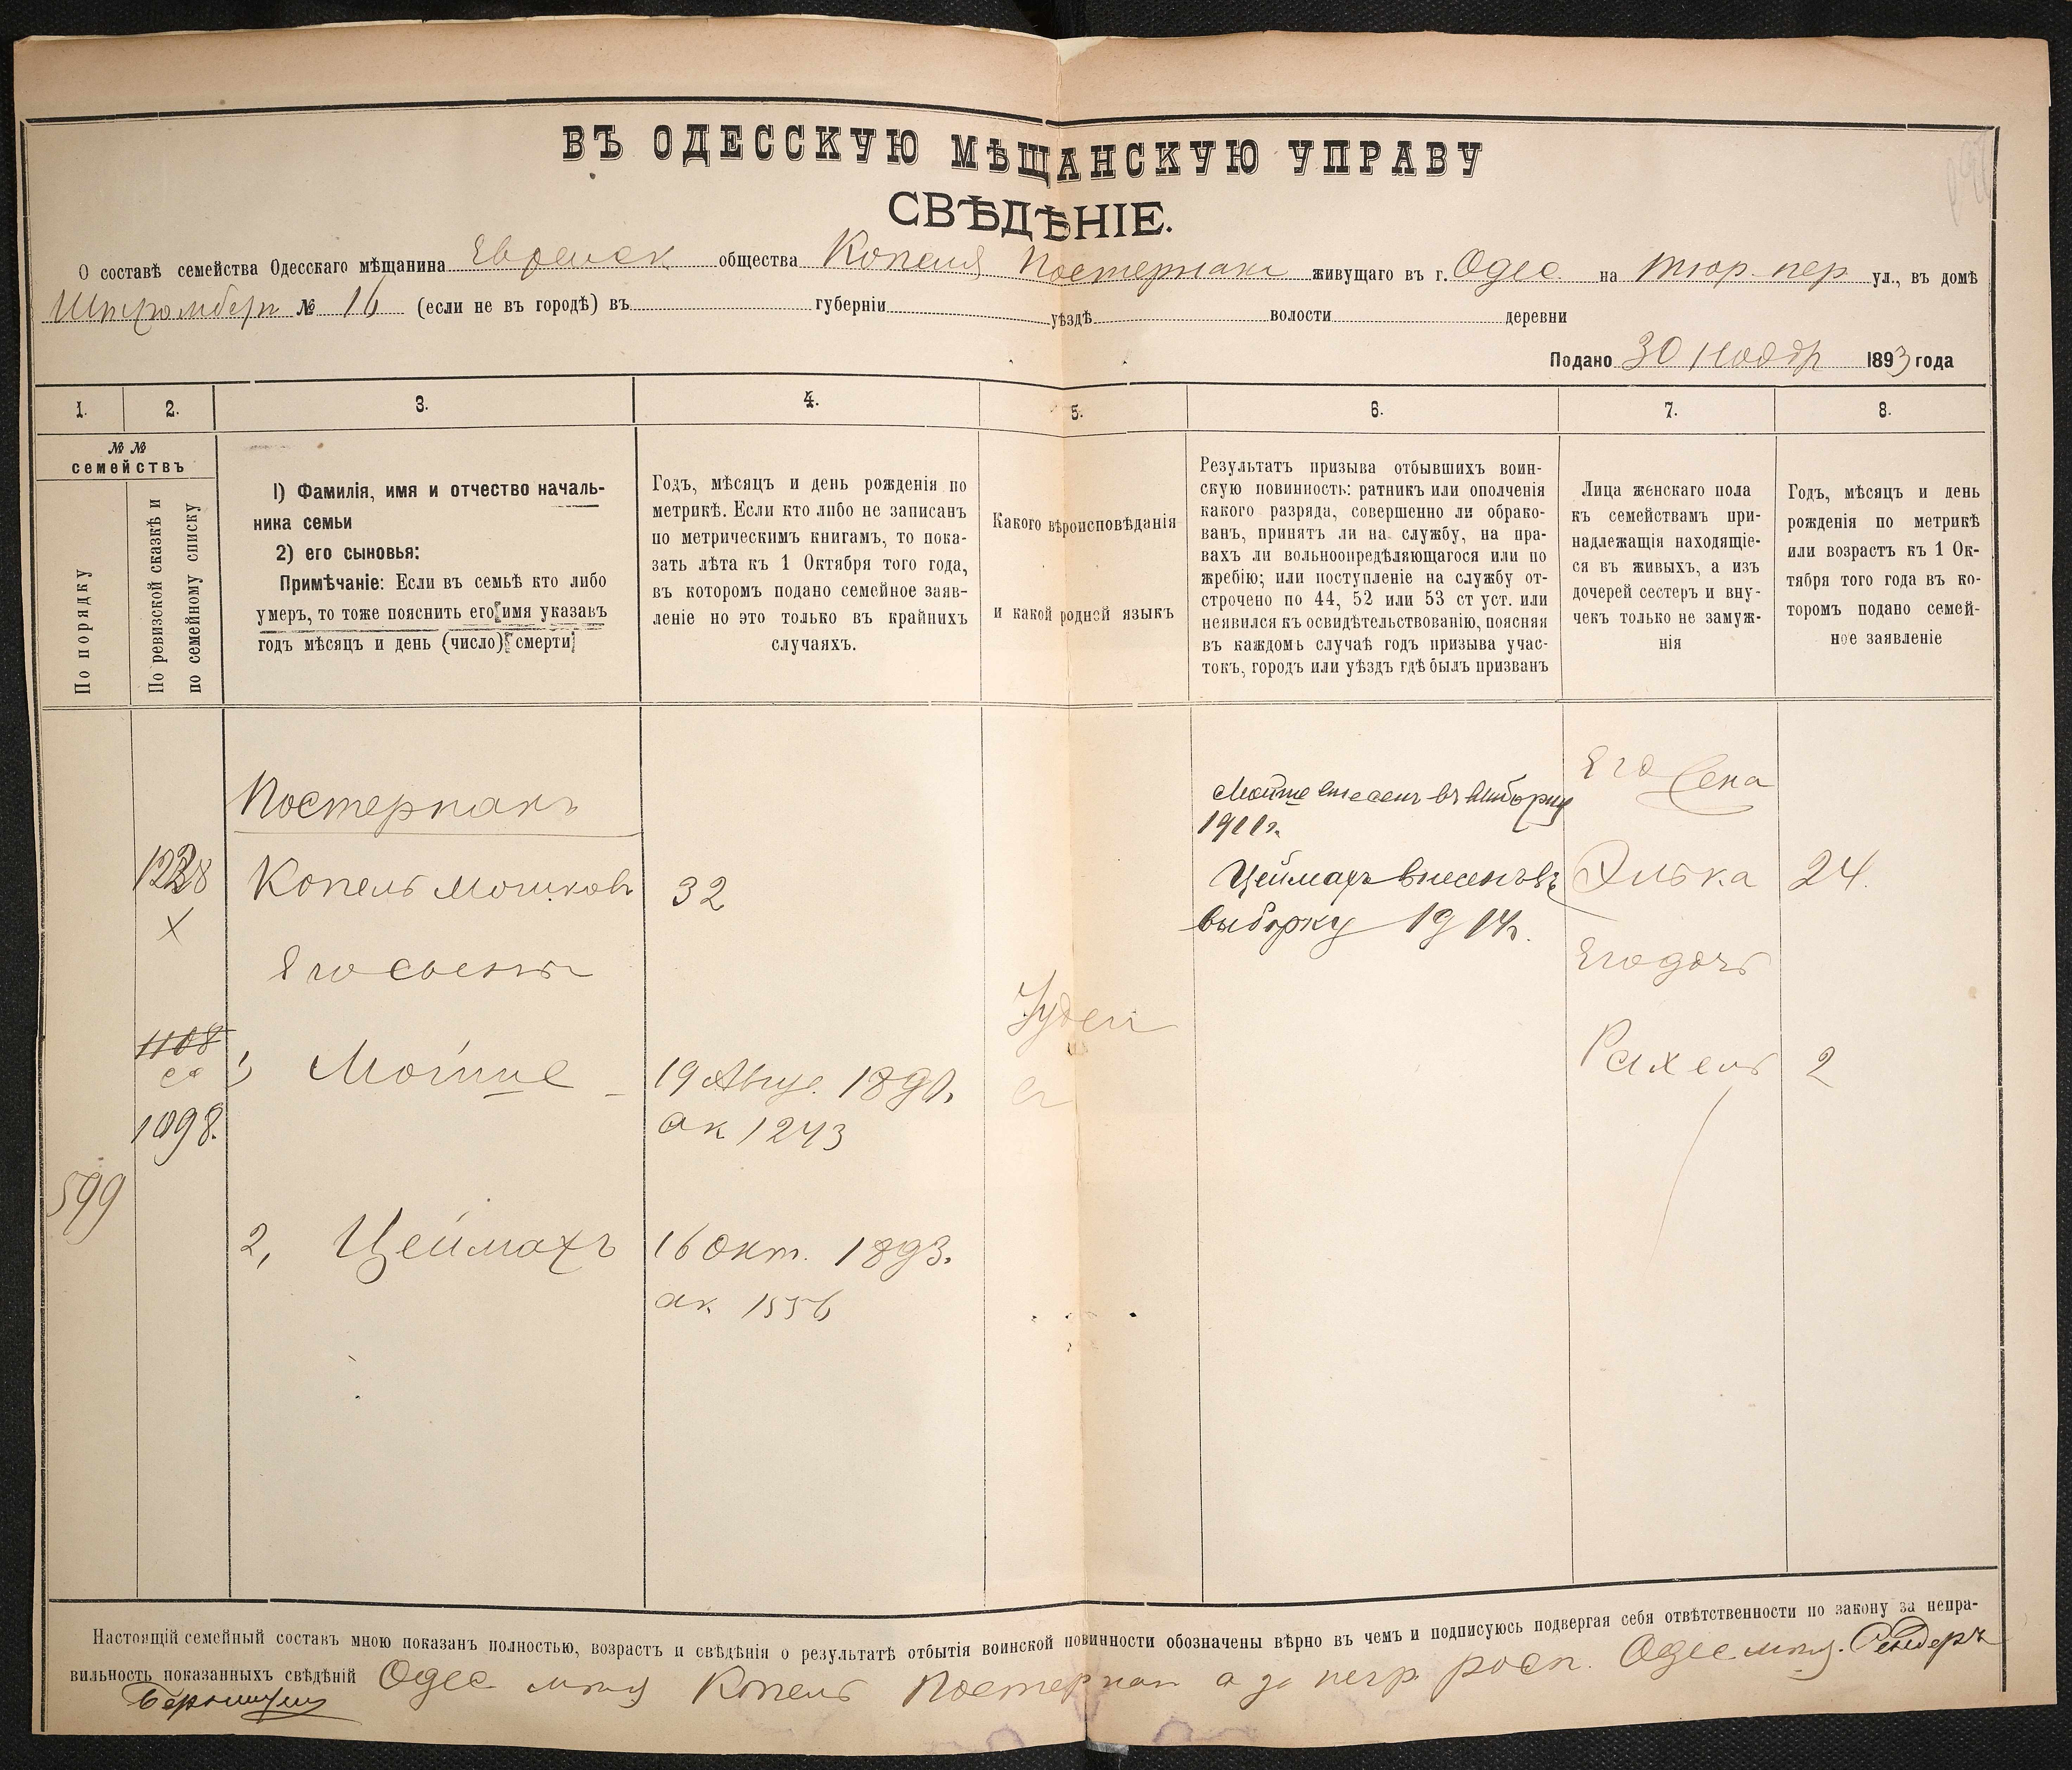 ВЪ ОДЕССКУЮ МѢЩАНСКУЮ УПРАВУ
СВѢДѢНІЕ.
О составѣ семейства Одесскаго мѣщанина Еврейск общества Копеля Постернакъ живущаго въ г. Одес на тюр. пер ул., въ домѣ
Штромберг № 16 (если не въ городѣ) въ губерніи уѣздѣ волости деревни
Подано 30 Ноябр 1893 года
1. 2. 3. 4. 5. 6. 7. 8.
№ №
семействъ
По порядку
По ревизской сказкѣ и
по семейному списку
1) Фамилія, имя и отчество началь-
ника семьи
2) его сыновья:
Примѣчаніе: Если въ семьѣ кто либо
умеръ, то тоже пояснить его имя указавъ
годъ мѣсяцъ и день (число) смерти
Годъ, мѣсяцъ и день рожденія по
метрикѣ. Если кто либо не записанъ
по метрическимъ книгамъ, то пока-
зать лѣта къ 1 Октября того года,
въ которомъ подано семейное заяв-
леніе но это только въ крайнихъ
случаяхъ.
Какого вѣроисповѣданія
и какой родной языкъ
Результатъ призыва отбывшихъ воин-
скую повинность: ратникъ или ополченія
какого разряда, совершенно ли обрако-
ванъ, принятъ ли на службу, на пра-
вахъ ли вольноопредѣляющагося или по
жребію; или поступленіе на службу от-
строчено по 44, 52 или 53 ст уст. или
неявился къ освидѣтельствованію, поясняя
въ каждомъ случаѣ годъ призыва учас-
токъ, городъ или уѣздъ гдѣ былъ призванъ
Лица женскаго пола
къ семействамъ при-
надлежащія находящіе-
ся въ живыхъ, а изъ
дочерей сестеръ и вну-
чекъ только не замуж-
нія
Годъ, мѣсяцъ и день
рожденія по метрикѣ
или возрастъ къ 1 Ок-
тября того года въ ко-
торомъ подано семей-
ное заявленіе
Постернакъ
1228 Копель Мошковъ 32
х
Его сыновья
1108 1, Мойше 19 Авгус. 1890.
1098. ак 1243
599
2, Цеймахъ 16 Окт. 1893.
ак 1556
Іудей
Мойше внесенъ въ выборку
1911 г.
Цеймахъ внесенъ въ
выборку 1914 г.
Его жена
Элька 24.
Его дочь
Рахель 2
Настоящій семейный составъ мною показанъ полностью, возрастъ и свѣдѣнія о результатѣ отбытія воинской повинности обозначены вѣрно въ чемъ и подписуюсь подвергая себя отвѣтственности по закону за непра-
вильность показанныхъ свѣдѣній Одес мѣщ Копель Постернак а за негр росп. Одес мѣщ. Сендеръ